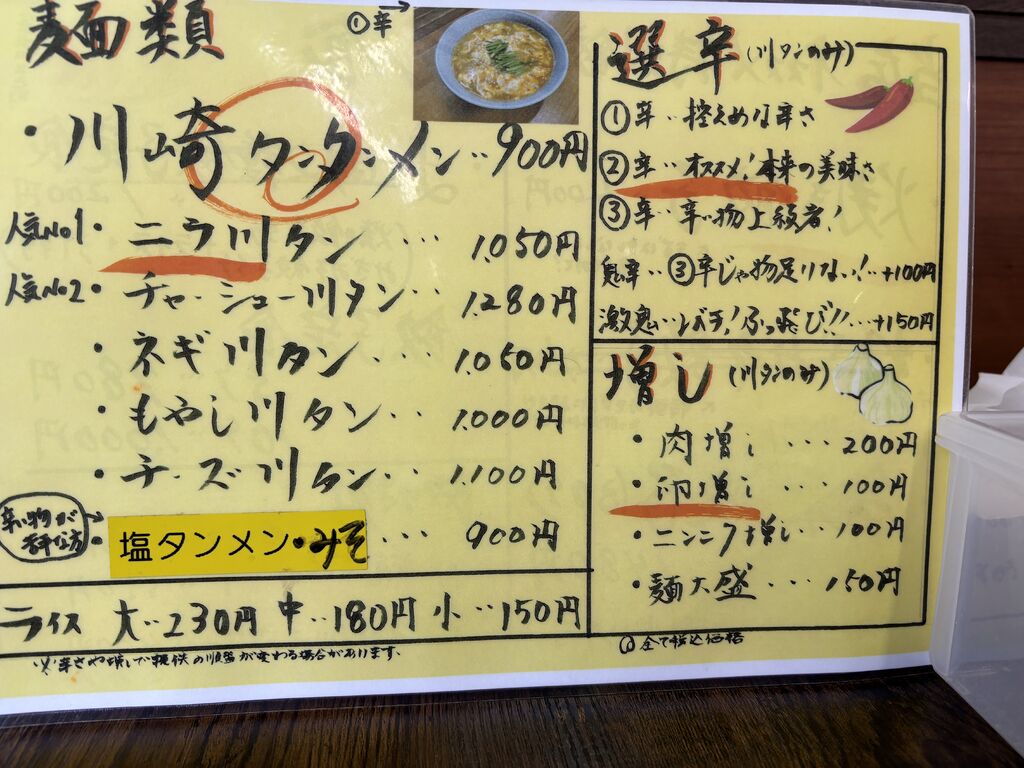 麺類
①辛→
・川崎タンタンメン‥900円
人気No1・ニラ川タン・・・1.050円
人気No2・チャーシュー川タン・・1.280円
・ネギ川タン・・・・1.050円
・もやし川タン・・1.000円
・チーズ川タン・・1.100円
辛い物が
苦手な方→
・塩タンメン・みそ・・・900円
ライス 大‥230円 中‥180円 小‥150円
※辛さや増しで提供の順番が変わる場合があります.
選辛(川タンのみ)
①辛‥控えめな辛さ
②辛‥オススメ!本来の美味さ
③辛‥辛い物上級者!
鬼辛‥③辛じゃ物足りない!‥+100円
激鬼‥レバチ!ぶっ飛び!!‥+150円
増し(川タンのみ)
・肉増し・・・200円
・卵増し・・・100円
・ニンニク増し・・100円
・麺大盛・・・150円
全て税込価格